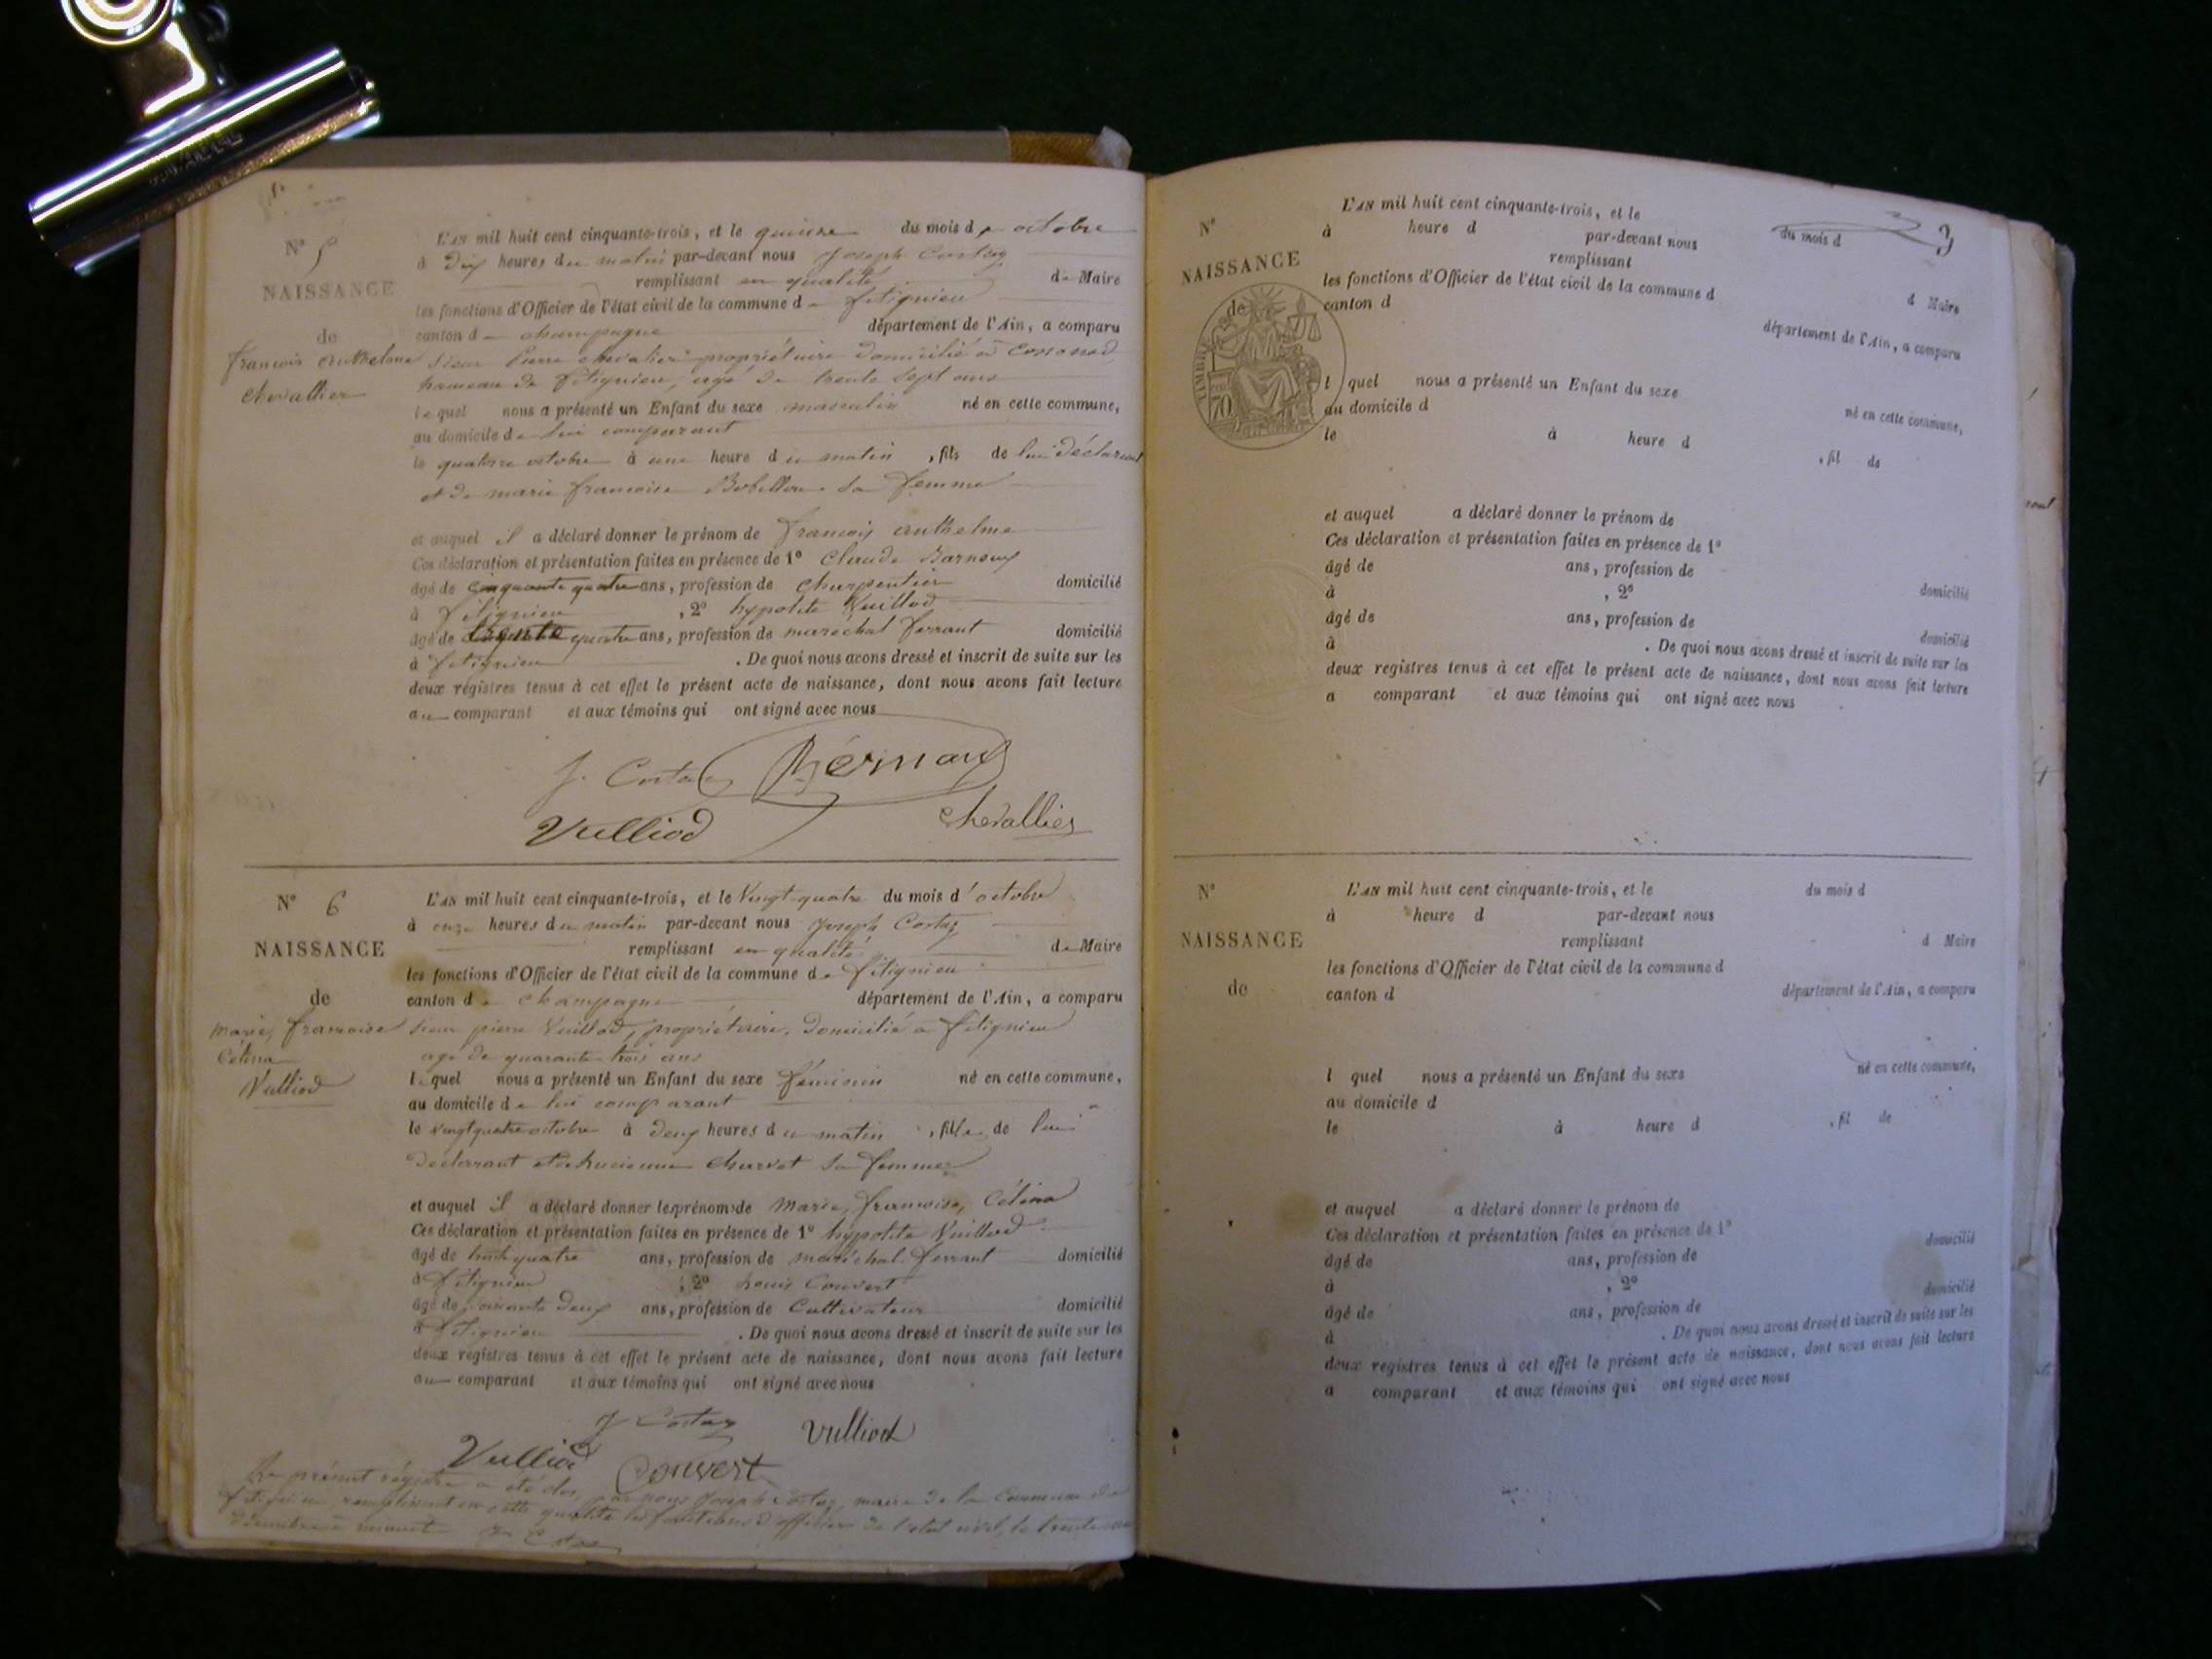 N° 5
NAISSANCE
de
françois Anthelme
Chevallier
L'AN mil huit cent cinquante-trois, et le quinze du mois d'octobre
à Dix heures du matin par-devant nous Joseph Costaz
remplissant en qualité de Maire
les fonctions d'Officier de l'état civil de la commune de fitignieu
canton de champagne département de l'Ain, a comparu
sieur Pierre chevalier propriétaire domicilié à
hameau de fitignieu, agé de trente sept ans
lequel nous a présenté un Enfant du sexe masculin né en cette commune,
au domicile de lui comparant
le quatorze octobre à une heure du matin, fils de lui déclarant
et de marie françoise sa femme
et auquel il a déclaré donner le prénom de françois anthelme
Ces déclaration et présentation faites en présence de 1° Claude
âgé de cinquante quatre ans, profession de charpentier domicilié
à fitignieu, 2° hypolite Vuilliod
âgé de quatre ans, profession de maréchal ferrant domicilié
à fitignieu. De quoi nous avons dressé et inscrit de suite sur les
deux registres tenus à cet effet le présent acte de naissance, dont nous avons fait lecture
au comparant et aux témoins qui ont signé avec nous
J. Costaz
Vulliod chevallier
N° 6
NAISSANCE
de
marie, françoise
Célina
Vulliod
L'AN mil huit cent cinquante-trois, et le Vingt-quatre du mois d'octobre
à onze heures du matin par-devant nous Joseph Costaz
remplissant en qualité de Maire
les fonctions d'Officier de l'état civil de la commune de fitignieu
canton de champagne département de l'Ain, a comparu
sieur pierre Vuilliod, propriétaire, domicilié à fitignieu
agé de quarante trois ans
lequel nous a présenté un Enfant du sexe féminin né en cette commune,
au domicile de lui comparant
le vingt quatre octobre à deux heures du matin, fille de lui
déclarant et de sa femme
et auquel il a déclaré donner les prénoms de marie, françoise, Célina
Ces déclaration et présentation faites en présence de 1° hypolite Vuilliod
âgé de trente quatre ans, profession de maréchal ferrant domicilié
à fitignieu, 2° Louis Convert
âgé de soixante deux ans, profession de Cultivateur domicilié
à fitignieu. De quoi nous avons dressé et inscrit de suite sur les
deux registres tenus à cet effet le présent acte de naissance, dont nous avons fait lecture
au comparant et aux témoins qui ont signé avec nous
J Costaz Vulliod
Vulliod Convert
Le présent régistre a été clos par nous Joseph Costaz, maire de la Commune de
fitignieu remplissant en cette qualité les fonctions d'officier de l'état civil, le trente un
décembre à minuit J Costaz
3
N°
NAISSANCE
de
TIMBRE
70
L'AN mil huit cent cinquante-trois, et le du mois d
à heure d par-devant nous
remplissant d Maire
les fonctions d'Officier de l'état civil de la commune d
canton d département de l'Ain, a comparu
l quel nous a présenté un Enfant du sexe né en cette commune,
au domicile d
le à heure d , fil de
et auquel a déclaré donner le prénom de
Ces déclaration et présentation faites en présence de 1°
âgé de ans, profession de domicilié
à , 2°
âgé de ans, profession de domicilié
à . De quoi nous avons dressé et inscrit de suite sur les
deux registres tenus à cet effet le présent acte de naissance, dont nous avons fait lecture
a comparant et aux témoins qui ont signé avec nous
N°
NAISSANCE
de
L'AN mil huit cent cinquante-trois, et le du mois d
à heure d par-devant nous
remplissant d Maire
les fonctions d'Officier de l'état civil de la commune d
canton d département de l'Ain, a comparu
l quel nous a présenté un Enfant du sexe né en cette commune,
au domicile d
le à heure d , fil de
et auquel a déclaré donner le prénom de
Ces déclaration et présentation faites en présence de 1°
âgé de ans, profession de domicilié
à , 2°
âgé de ans, profession de domicilié
à . De quoi nous avons dressé et inscrit de suite sur les
deux registres tenus à cet effet le présent acte de naissance, dont nous avons fait lecture
a comparant et aux témoins qui ont signé avec nous